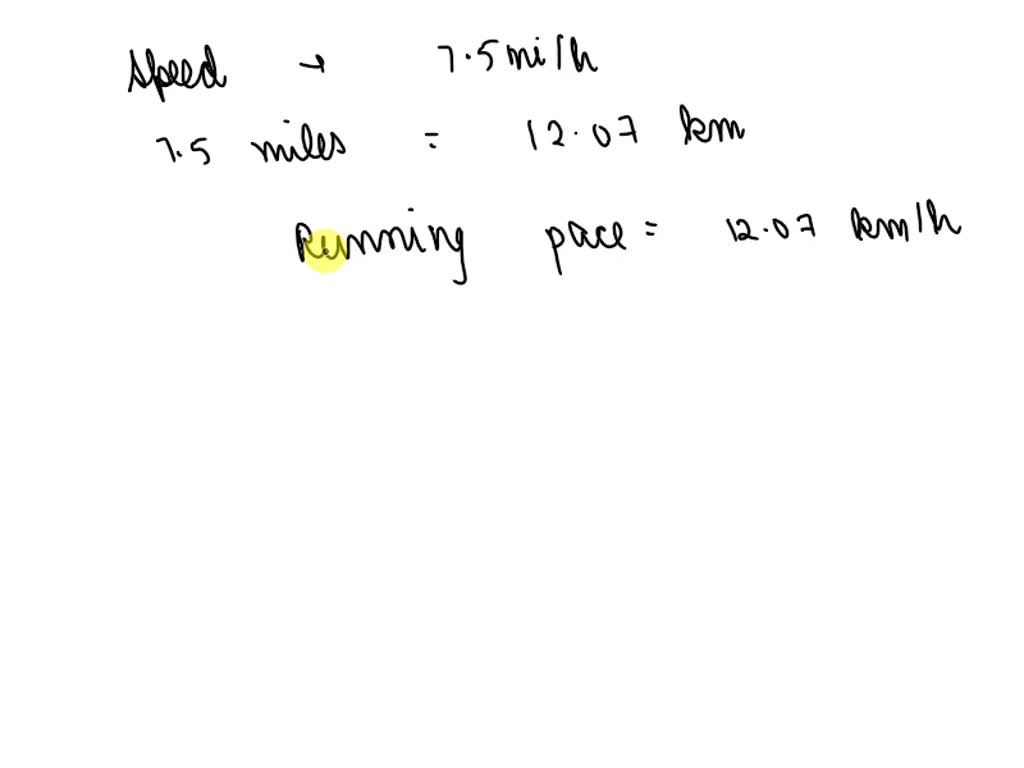 Speed → 7.5 mi/h
7.5 miles = 12.07 km
Running pace = 12.07 km/h